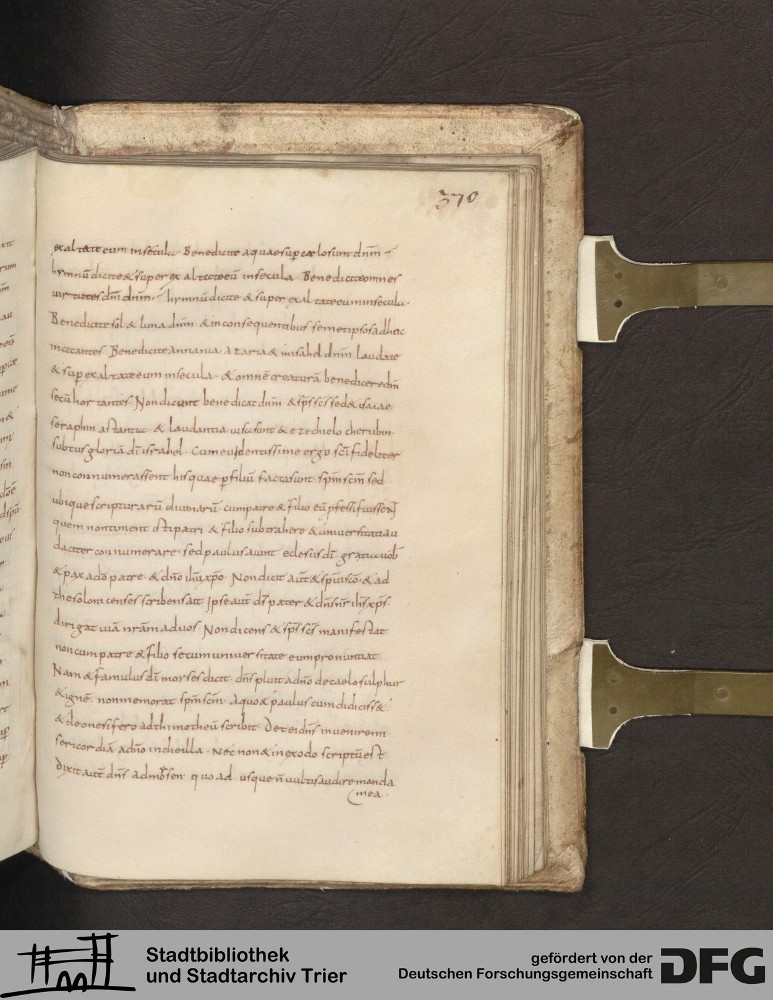 370
exaltate eum insecula· Benedicite aquae sup caelos sunt dnm
hymnu dicite & superexaltate eu insecula· Benedicite omnes
uirtutes dni dnm· hymnu dicite & superexaltate eum insecula·
Benedicite sol & luna dnm· & in consequentibus semetipsos adhuc
incitantes Benedicite annania azaria & misahel dnm laudate
& sup exaltate eum insecula· & omne creatura benedicere dnm
secu hortantes· Non dicunt benedicat dnm & sps scs sed & isaiae
seraphin astantia & laudantia uisa sunt & ezechielo cherubin·
subtus gloria di israhel· Cum euidentissime ergo sci fideliter
non connumerassent his quae p filiu facta sunt spm scm sed
ubique scripturaru diuinaru· cum patre & filio eu pfessi fuissent
quem non timent isti patri & filio subtrahere & uniuersitati au
daciter connumerare· sed paulus aiunt eclesiis di gratia uob
& pax a do patre· & dno ihu xpo· Non dicit aut & spu sco· & ad
thesolonicenses scribens ait Ipse aut ds pater & dns nr ihs xps
dirigat uia nram ad uos· Non dicens & sps scs manifestat
non cum patre & filio secum uniuersitate eum pronuntiat·
Nam & famulus di moises dicit· dns pluit a dno de caelo sulphur
& igne· non memorat spm scm· A quo & paulus cum didicisset
& de onesifero ad thimotheu scribit· Det ei dns inuenire mi
sericordia a dno in die illa· Nec non & in exodo scriptu est
Dixit aut dns ad mosen quo ad usque n uultis audire manda
mea·
Stadtbibliothek
und Stadtarchiv Trier
gefördert von der
Deutschen Forschungsgemeinschaft
DFG